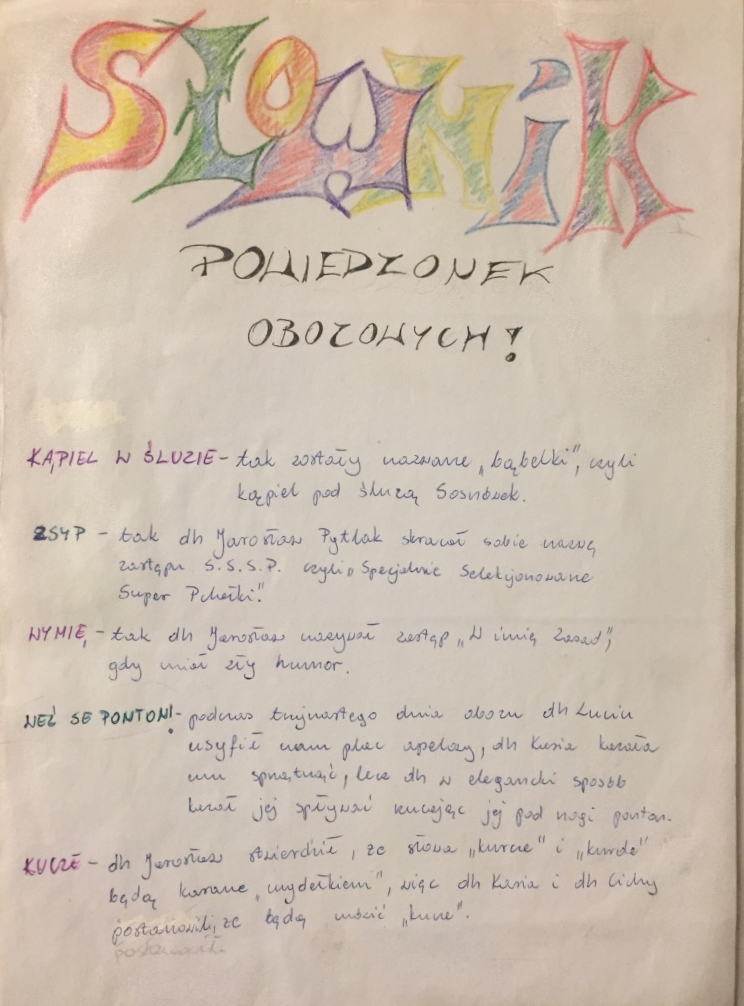 SŁOWNiK
POWIEDZONEK
OBOZOWYCH!
KĄPIEL W ŚLUZIE - tak zostały nazwane „bąbelki”, czyli
kąpiel pod śluzą Sosnówek.
ZSYP - tak dh Jarosław Pytlak skracał sobie nazwę
zastępu S.S.S.P. czyli „Specjalnie Selekcjonowane
Super Pchełki.”
WYMIĘ - tak dh Jarosław nazywał zastęp „W imię Zasad”,
gdy miał zły humor.
WEŹ SE PONTON! - podczas trzynastego dnia obozu dh Luciu
usyfił nam plac apelowy, dh Kasia kazała
mu sprzątnąć, lecz dh w elegancki sposób
kazał jej spływać rzucając jej pod nogi ponton.
KUCZE - dh Jarosław stwierdził, że słowa „kurcze” i „kurde”
będą karane „mydełkiem”, więc dh Kasia i dh Cichy
postanowili, że będą mówić